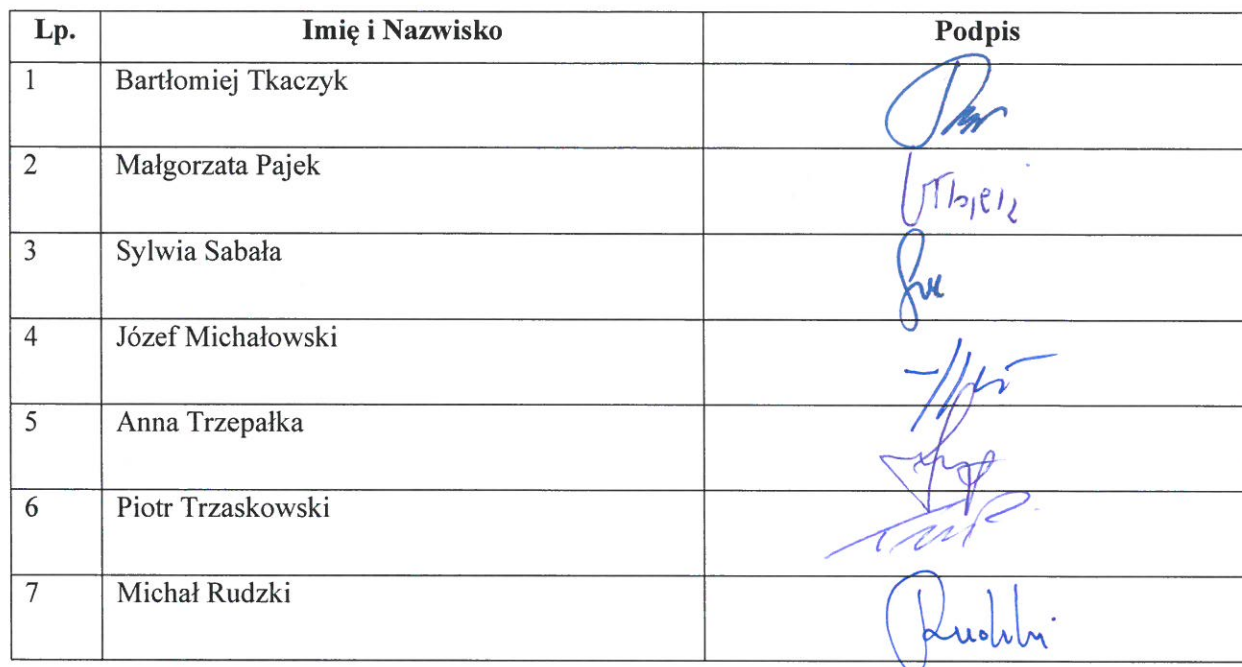 Lp. Imię i Nazwisko Podpis
1 Bartłomiej Tkaczyk
2 Małgorzata Pajek
3 Sylwia Sabała
4 Józef Michałowski
5 Anna Trzepałka
6 Piotr Trzaskowski
7 Michał Rudzki